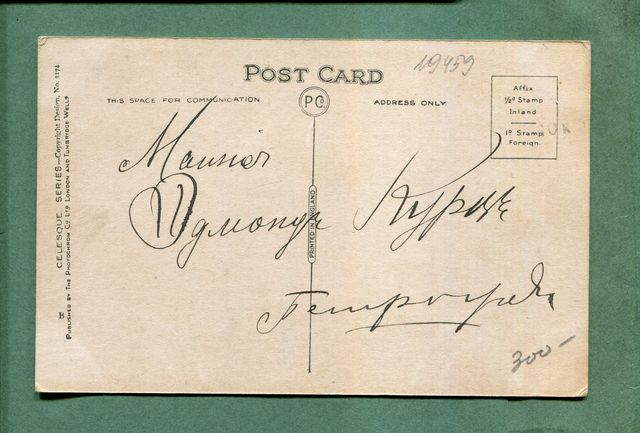 19459
POST CARD
THIS SPACE FOR COMMUNICATION
PCo
ADDRESS ONLY.
Affix
½d Stamp
Inland
1d Stamp
Foreign.
CELESQUE SERIES—Copyright Design, No. 1174
PUBLISHED BY THE PHOTOCHROM CO LTD LONDON AND TUNBRIDGE WELLS.
PRINTED IN ENGLAND
Эдмондъ Курцъ
Петроградъ
300-